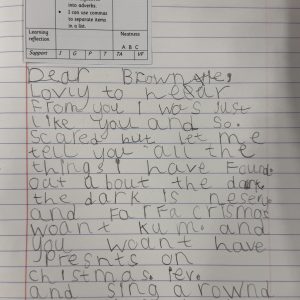 into adverbs.
I can use commas
to separate items
in a list.
Learning
reflection
Neatness
A B C
Support I G P T TA VF
Dear Brown
Lovly to hear
From you I was just
like you and so.
scared but let me
tell you all the
things I have Found
out about the dark
the dark is
and
woant kum. and
you woant have
presnts on
christmas. ev.
and sing arownd